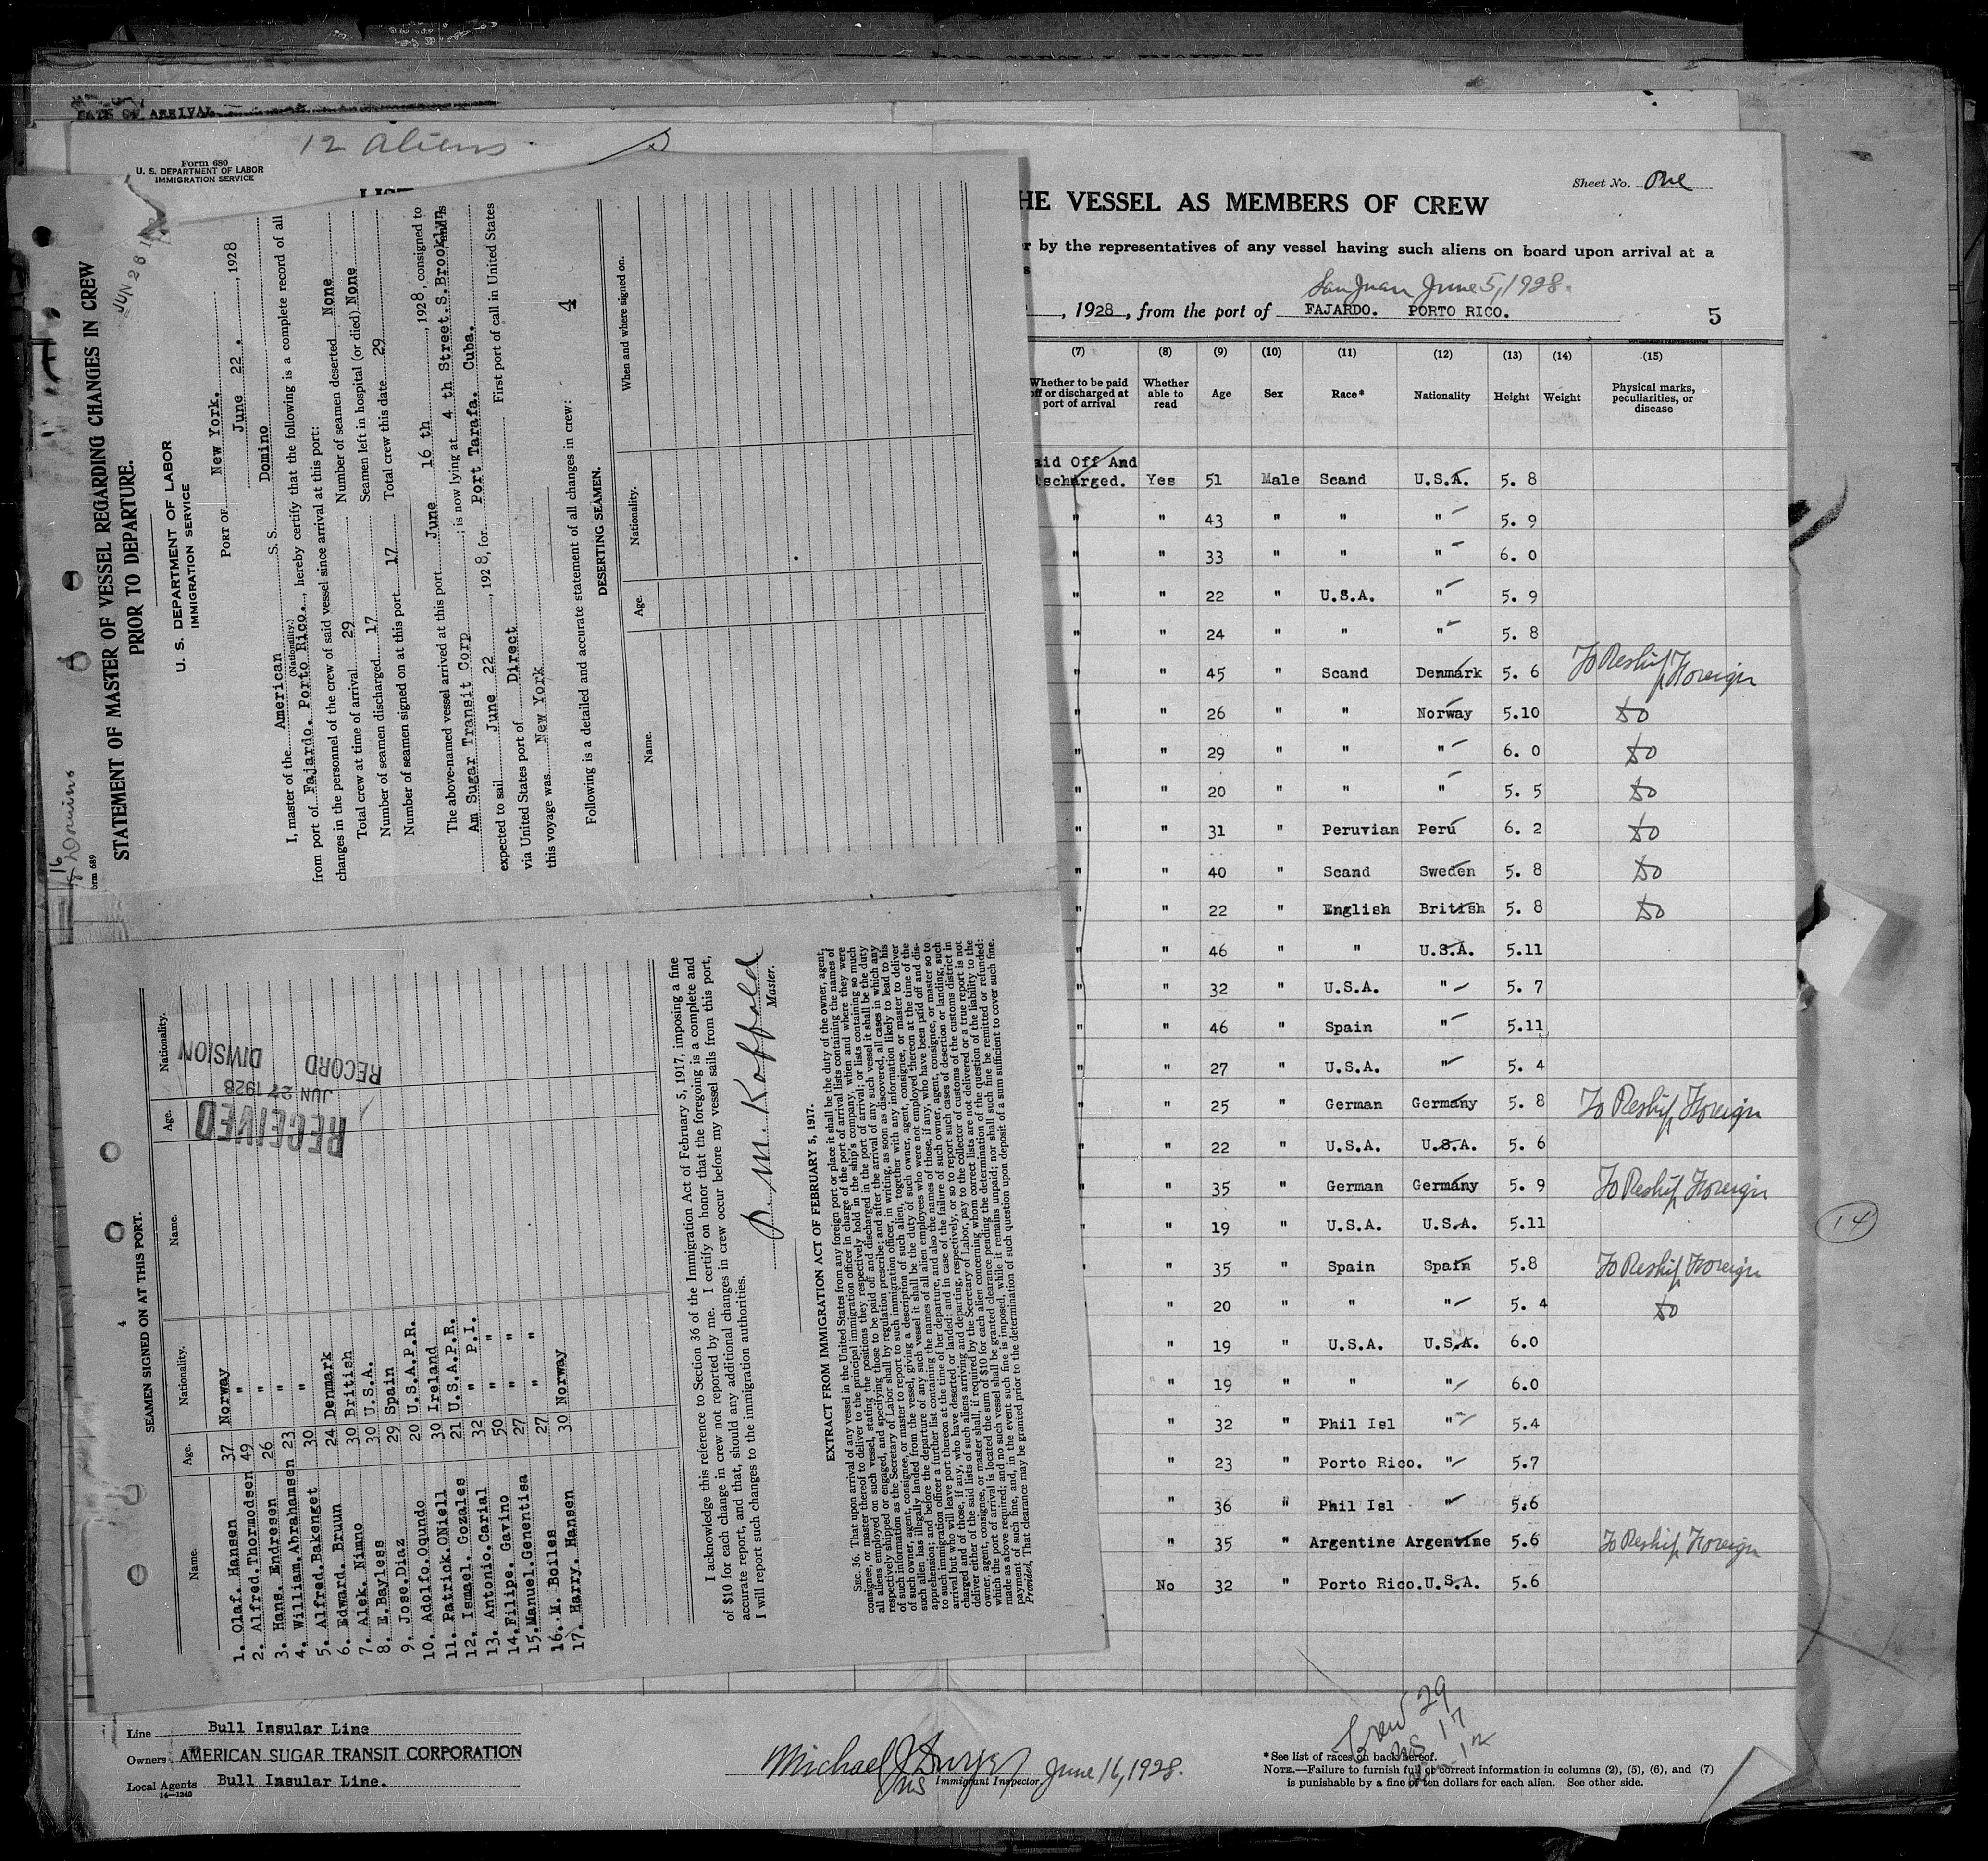 DATE OF ARRIVAL
12 aliens
Form 680
U. S. DEPARTMENT OF LABOR
IMMIGRATION SERVICE
Sheet No. One
HE VESSEL AS MEMBERS OF CREW
by the representatives of any vessel having such aliens on board upon arrival at a
San Juan June 5, 1928.
, 1928, from the port of FAJARDO. PORTO RICO.
5
(7) (8) (9) (10) (11) (12) (13) (14) (15)
Whether to be paid off or discharged at port of arrival
Whether able to read
Age
Sex
Race*
Nationality
Height
Weight
Physical marks, peculiarities, or disease
aid Off And
scharged. Yes 51 Male Scand U.S.A. 5. 8
" " 43 " " " 5. 9
" " 33 " " " 6. 0
" " 22 " U.S.A. " 5. 9
" " 24 " " " 5. 8
" " 45 " Scand Denmark 5. 6 To Reship Foreign
" " 26 " " Norway 5.10 do
" " 29 " " " 6. 0 do
" " 20 " " " 5. 5 do
" " 31 " Peruvian Peru 6. 2 do
" " 40 " Scand Sweden 5. 8 do
" " 22 " English British 5. 8 do
" " 46 " " U.S.A. 5.11
" " 32 " U.S.A. " 5. 7
" " 46 " Spain " 5.11
" " 27 " U.S.A. " 5. 4
" " 25 " German Germany 5. 8 To Reship Foreign
" " 22 " U.S.A. U.S.A. 5. 6
" " 35 " German Germany 5. 9 To Reship Foreign
" " 19 " U.S.A. U.S.A. 5.11
" " 35 " Spain Spain 5.8 To Reship Foreign
" 20 " " " 5. 4 do
" 19 " U.S.A. U.S.A. 6.0
" 19 " " " 6.0
" 32 " Phil Isl " 5.4
" 23 " Porto Rico. " 5.7
" 36 " Phil Isl " 5.6
" 35 " Argentine Argentine 5.6 To Reship Foreign
No 32 " Porto Rico. U.S.A. 5.6
14
Crew 29
US 17
12
Line Bull Insular Line
Owners AMERICAN SUGAR TRANSIT CORPORATION
Local Agents Bull Insular Line.
14—1240
Michael J Dwyer
Immigrant Inspector
June 16, 1928.
*See list of races on back hereof.
NOTE.—Failure to furnish full or correct information in columns (2), (5), (6), and (7)
is punishable by a fine of ten dollars for each alien. See other side.
16
Domino
orm 689
JUN 28
STATEMENT OF MASTER OF VESSEL REGARDING CHANGES IN CREW
PRIOR TO DEPARTURE.
U. S. DEPARTMENT OF LABOR
IMMIGRATION SERVICE
PORT OF New York.
June 22 . , 1928
I, master of the American S. S. Domino
(Nationality.)
from port of Fajardo. Porto Rico. , hereby certify that the following is a complete record of all
changes in the personnel of the crew of said vessel since arrival at this port:
Total crew at time of arrival 29 Number of seamen deserted None
Number of seamen discharged 17 Seamen left in hospital (or died) None
Number of seamen signed on at this port 17 Total crew this date 29
The above-named vessel arrived at this port June 16 th , 1928, consigned to
Am Sugar Transit Corp ; is now lying at 4 th Street.S.Brooklyn, and is
expected to sail June 22 , 1928, for Port Tarafa. Cuba.
via United States port of Direct First port of call in United States
this voyage was New York
4
Following is a detailed and accurate statement of all changes in crew:
DESERTING SEAMEN.
Name. Age. Nationality. When and where signed on.
4
SEAMEN SIGNED ON AT THIS PORT.
Name. Age. Nationality. Name. Age. Nationality.
1. Olaf. Hansen 37 Norway
2. Alfred.Thormodsen 49 "
3. Hans. Endresen 26 "
4. Willian.Abrahamsen 23 "
5. Alfred.Bakenget 30 "
6. Edward. Bruun 24 Denmark
7. Alek. Nimno 30 British
8. E.Bayless 30 U.S.A.
9. Jose.Diaz 29 Spain
10. Adolfo.Oqundo 20 U.S.A.P.R.
11. Patrick.ONiell 30 Ireland
12. Ismael. Gozales 21 U.S.A.P.R.
13. Antonio.Carsial 32 " P.I.
14. Filipe. Gavino 50 " "
15. Manuel.Genentisa 27 " "
16. M. Bobiles 27 " "
17. Harry. Hansen 30 Norway
RECEIVED
JUN 27 1928
RECORD DIVISION
I acknowledge this reference to Section 36 of the Immigration Act of February 5, 1917, imposing a fine
of $10 for each change in crew not reported by me. I certify on honor that the foregoing is a complete and
accurate report, and that, should any additional changes in crew occur before my vessel sails from this port,
I will report such changes to the immigration authorities.
Master.
EXTRACT FROM IMMIGRATION ACT OF FEBRUARY 5, 1917.
SEC. 36. That upon arrival of any vessel in the United States from any foreign port or place it shall be the duty of the owner, agent,
consignee, or master thereof to deliver to the principal immigration officer in charge of the port of arrival lists containing the names of
all aliens employed on such vessel, stating the positions they respectively hold in the ship's company, when and where they were
respectively shipped or engaged, and specifying those to be paid off and discharged in the port of arrival; or lists containing so much
of such information as the Secretary of Labor shall by regulation prescribe; and after the arrival of any such vessel it shall be the duty
of such owner, agent, consignee, or master to report to such immigration officer, in writing, as soon as discovered, all cases in which any
such alien has illegally landed from the vessel, giving a description of such alien, together with any information likely to lead to his
apprehension; and before the departure of any such vessel it shall be the duty of such owner, agent, consignee, or master to deliver
to such immigration officer a further list containing the names of all alien employees who were not employed thereon at the time of the
arrival but who will leave port thereon at the time of her departure, and also the names of those, if any, who have been paid off and dis-
charged and of those, if any, who have deserted or landed; and in case of the failure of such owner, agent, consignee, or master so to
deliver either of the said lists of such aliens arriving and departing, respectively, or so to report such cases of desertion or landing, such
owner, agent, consignee, or master shall, if required by the Secretary of Labor, pay to the collector of customs of the customs district in
which the port of arrival is located the sum of $10 for each alien concerning whom correct lists are not delivered or a true report is not
made as above required; and no such vessel shall be granted clearance pending the determination of the question of the liability to the
payment of such fine, and, in the event such fine is imposed, while it remains unpaid; nor shall such fine be remitted or refunded:
Provided, That clearance may be granted prior to the determination of such question upon deposit of a sum sufficient to cover such fine.